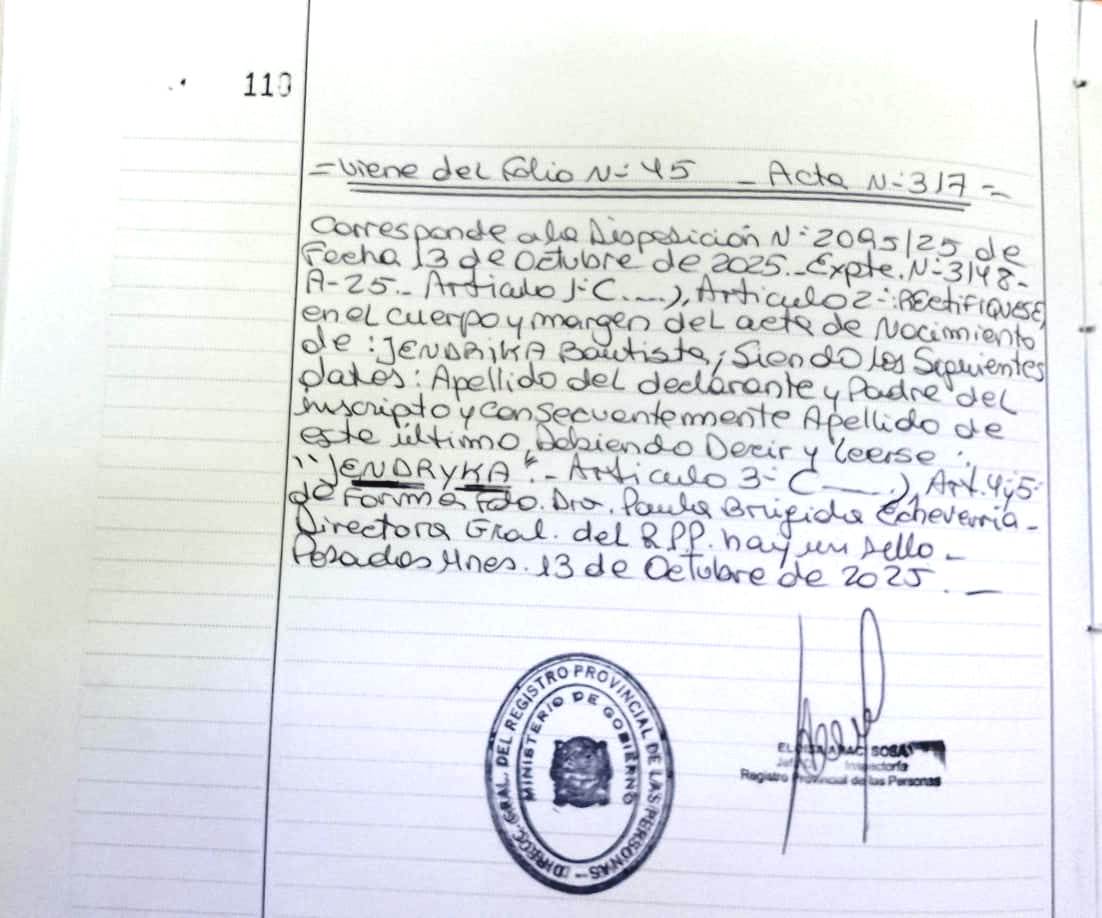 110
= Viene del Folio N-: 45 - Acta N-: 317 =
Corresponde a la Disposición N-: 2095/25 de
Fecha 13 de Octubre de 2025.- Expte. N-: 3148-
A-25.- Articulo 1-: C....), Articulo 2-: RECTIFIQUESE,
en el cuerpo y margen del acta de Nacimiento
de: JENDRIKA Bautista; Siendo los Siguientes
datos: Apellido del declarante y Padre del
Inscripto y consecuentemente Apellido de
este último, Debiendo Decir y leerse:
"JENDRYKA".- Articulo 3-: C....), Art. 4 y 5-:
de Forma Fdo. Dra. Paula Brigida Echeverria-
Directora Gral. del RPP. hay un sello-
Posadas Mnes. 13 de Octubre de 2025.-
DIRECC. GRAL. DEL REGISTRO PROVINCIAL DE LAS PERSONAS -
MINISTERIO DE GOBIERNO
SOSA
Registro Provincial de las Personas